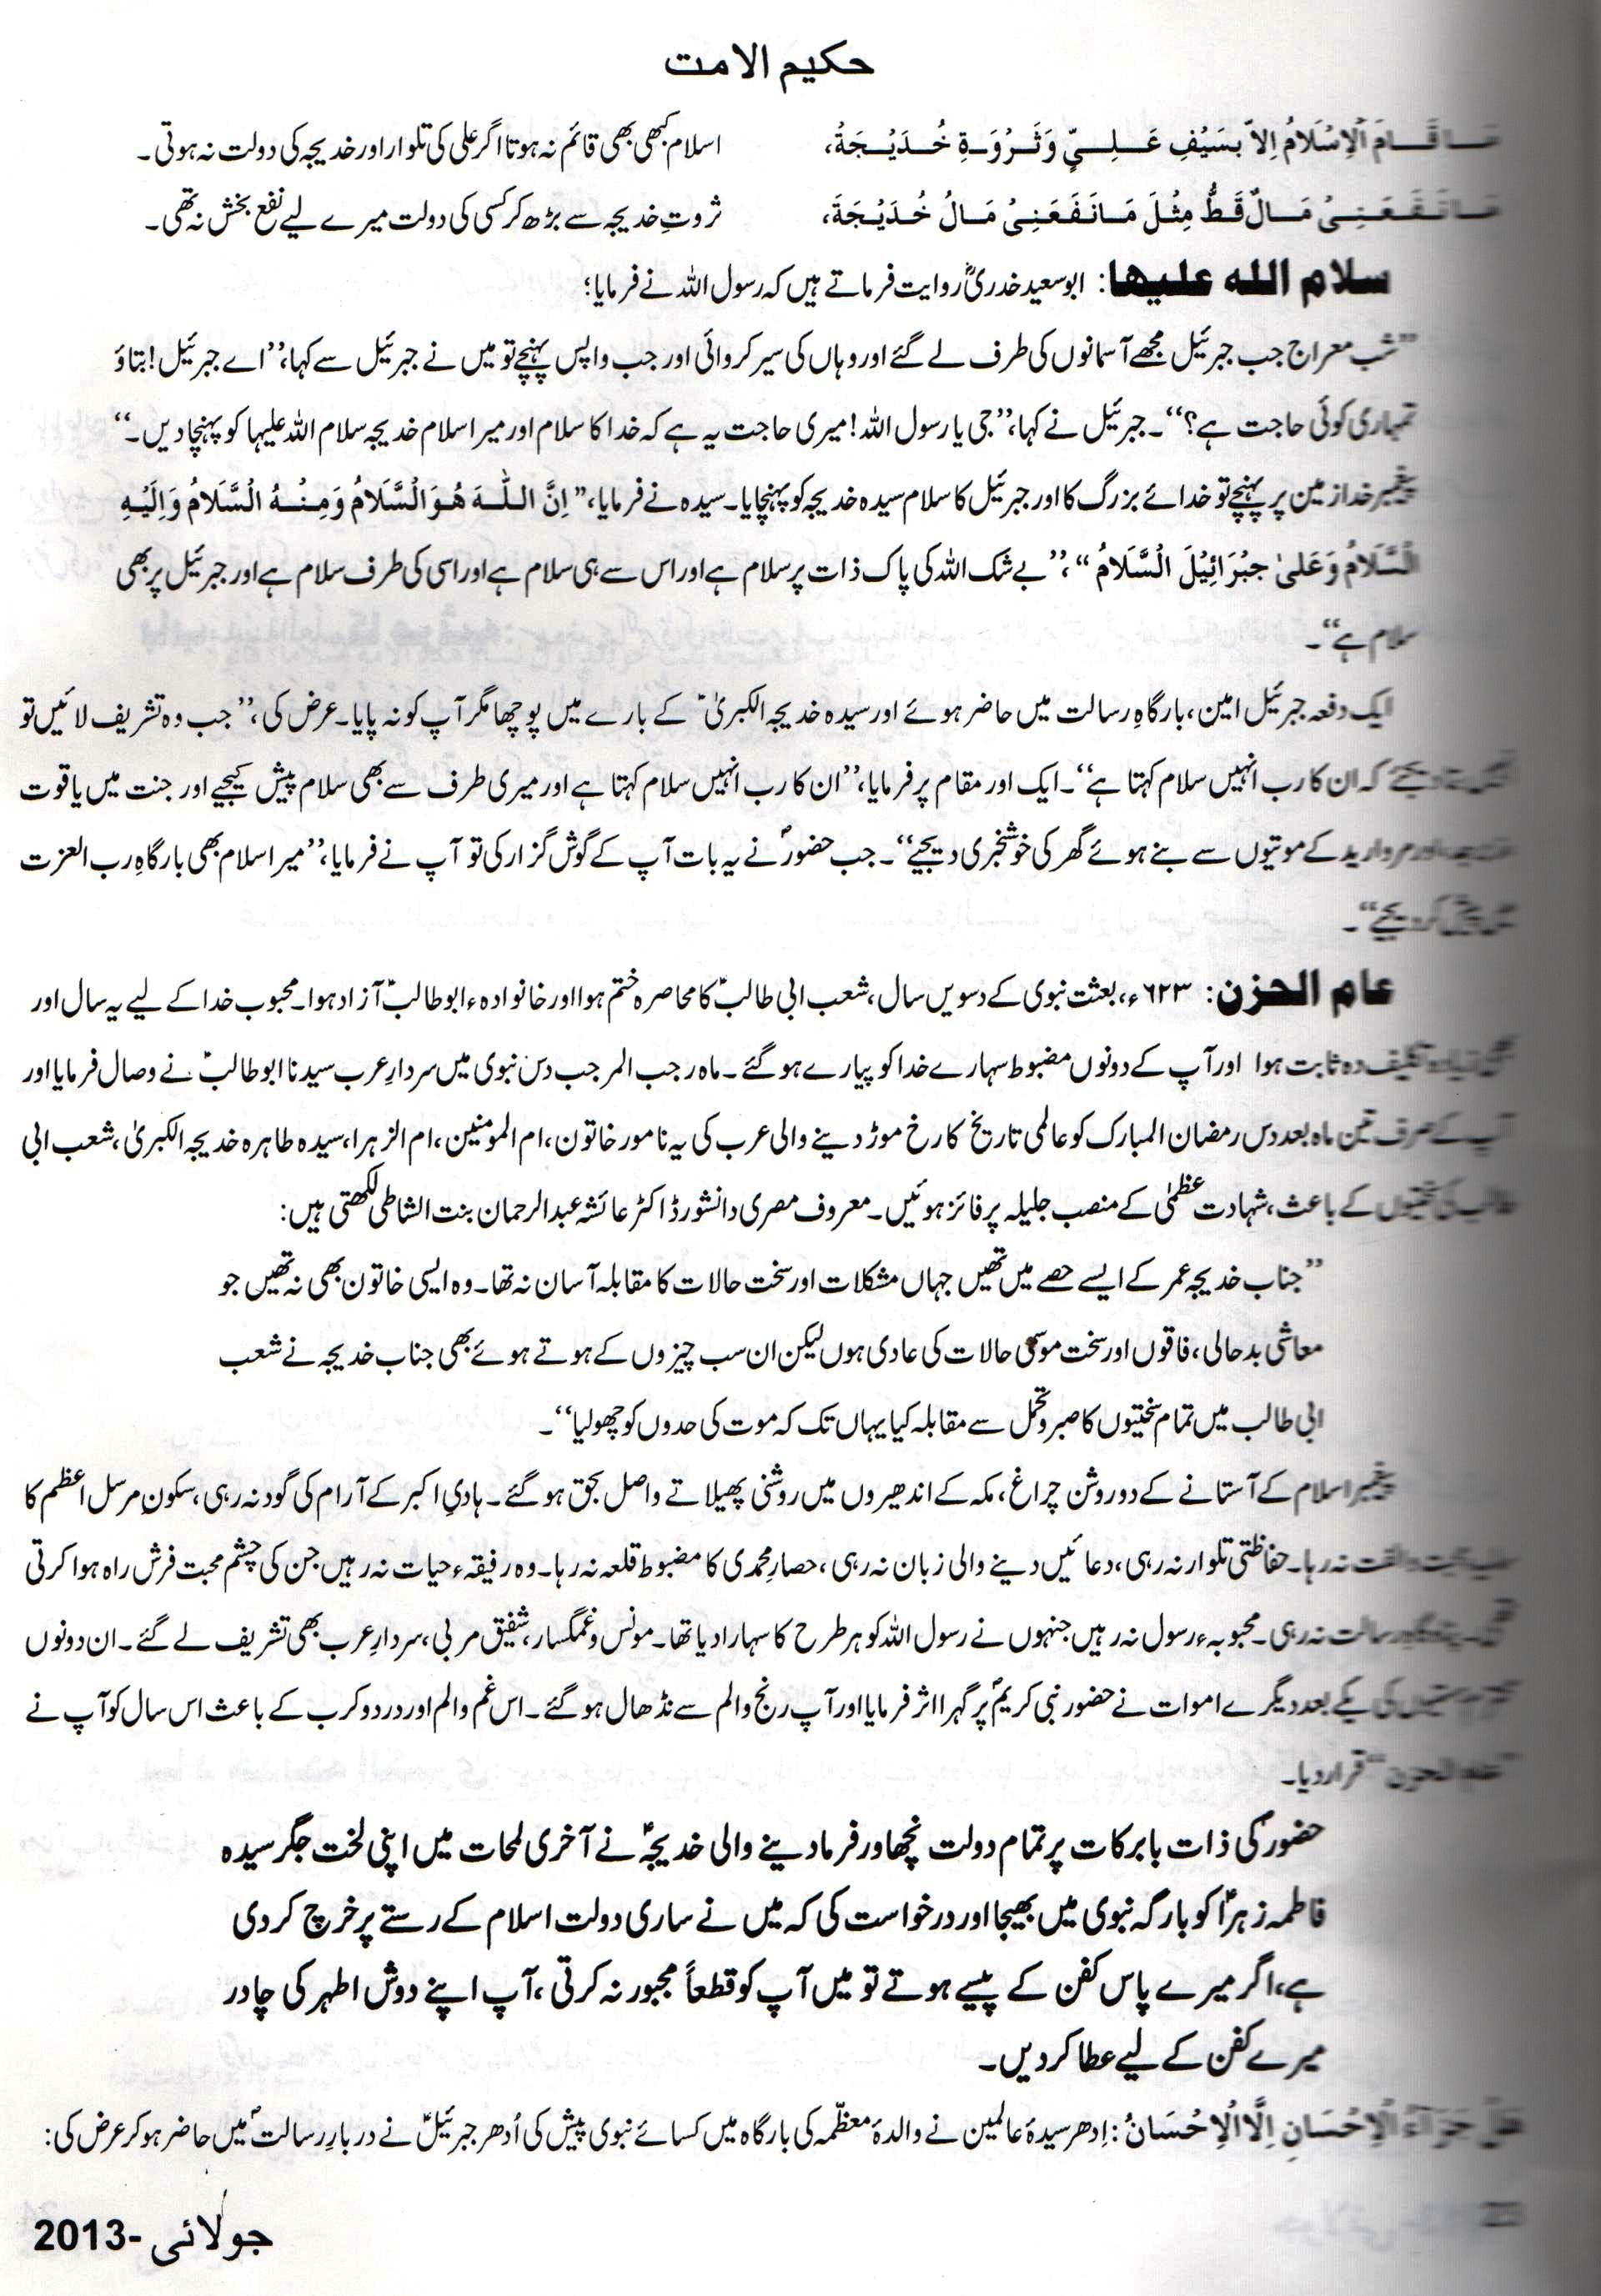 حکیم الامت
مَا قَامَ الْاِسْلَامُ اِلاَّ بِسَیْفِ عَلِیٍّ وَثَرْوَةِ خُدَیْجَةُ، اسلام کبھی بھی قائم نہ ہوتا اگر علی کی تلوار اور خدیجہ کی دولت نہ ہوتی۔
مَا نَفَعَنِیْ مَالٌ قَطُّ مِثْلَ مَا نَفَعَنِیْ مَالُ خُدَیْجَةَ، ثروتِ خدیجہ سے بڑھ کر کسی کی دولت میرے لیے نفع بخش نہ تھی۔
سلام اللہ علیہا: ابوسعید خدریؓ روایت فرماتے ہیں کہ رسول اللہ نے فرمایا؛
”شب معراج جب جبرئیل مجھے آسمانوں کی طرف لے گئے اور وہاں کی سیر کروائی اور جب واپس پہنچے تو میں نے جبرئیل سے کہا، ”اے جبرئیل! بتاؤ
تمہاری کوئی حاجت ہے؟“۔ جبرئیل نے کہا، ”جی یا رسول اللہ! میری حاجت یہ ہے کہ خدا کا سلام اور میرا سلام خدیجہ سلام اللہ علیہا کو پہنچا دیں۔“
پیغمبر خدا زمین پر پہنچے تو خدائے بزرگ کا اور جبرئیل کا سلام سیدہ خدیجہ کو پہنچایا۔ سیدہ نے فرمایا، ”اِنَّ اللّٰہَ ھُوَ الْسَّلَامُ وَمِنْہُ الْسَّلَامُ وَاِلَیْہِ
الْسَّلَامُ وَعَلیٰ جِبْرَائِیْلَ الْسَّلَامُ“، ”بے شک اللہ کی پاک ذات پر سلام ہے اور اس سے ہی سلام ہے اور اسی کی طرف سلام ہے اور جبرئیل پر بھی
سلام ہے“۔
ایک دفعہ جبرئیل امین، بارگاہِ رسالت میں حاضر ہوئے اور سیدہ خدیجہ الکبریٰؑ کے بارے میں پوچھا مگر آپ کو نہ پایا۔ عرض کی، ”جب وہ تشریف لائیں تو
دیجئے کہ ان کا رب انہیں سلام کہتا ہے“۔ ایک اور مقام پر فرمایا، ”ان کا رب انہیں سلام کہتا ہے اور میری طرف سے بھی سلام پیش کیجیے اور جنت میں یاقوت
اور مروارید کے موتیوں سے بنے ہوئے گھر کی خوشخبری دیجیے“۔ جب حضورؐ نے یہ بات آپ کے گوش گزار کی تو آپ نے فرمایا، ”میرا سلام بھی بارگاہِ رب العزت
میں پیش کر دیجیے“۔
عام الحزن: ۶۲۳ء، بعثت نبوی کے دسویں سال، شعب ابی طالبؑ کا محاصرہ ختم ہوا اور خانوادہء ابوطالبؑ آزاد ہوا۔ محبوب خدا کے لیے یہ سال اور
بھی زیادہ تکلیف دہ ثابت ہوا اور آپ کے دونوں مضبوط سہارے خدا کو پیارے ہو گئے۔ ماہ رجب المرجب دس نبوی میں سردارِ عرب سیدنا ابوطالبؑ نے وصال فرمایا اور
آپ کے صرف تین ماہ بعد دس رمضان المبارک کو عالمی تاریخ کا رخ موڑ دینے والی عرب کی یہ نامور خاتون، ام المومنین، ام الزہرا، سیدہ طاہرہ خدیجہ الکبریٰ، شعب ابی
طالب کی سختیوں کے باعث، شہادت عظمٰی کے منصب جلیلہ پر فائز ہوئیں۔ معروف مصری دانشور ڈاکٹر عائشہ عبدالرحمان بنت الشاطی لکھتی ہیں:
”جناب خدیجہ عمر کے ایسے حصے میں تھیں جہاں مشکلات اور سخت حالات کا مقابلہ آسان نہ تھا۔ وہ ایسی خاتون بھی نہ تھیں جو
معاشی بدحالی، فاقوں اور سخت موسمی حالات کی عادی ہوں لیکن ان سب چیزوں کے ہوتے ہوئے بھی جناب خدیجہ نے شعب
ابی طالب میں تمام سختیوں کا صبر و تحمل سے مقابلہ کیا یہاں تک کہ موت کی حدوں کو چھو لیا“۔
پیغمبر اسلام کے آستانے کے دو روشن چراغ، مکہ کے اندھیروں میں روشنی پھیلاتے واصل بحق ہو گئے۔ ہادیِ اکبر کے آرام کی گود نہ رہی، سکونِ مرسل اعظم کا
محبت و الفت نہ رہا۔ حفاظتی تلوار نہ رہی، دعائیں دینے والی زبان نہ رہی، حصارِ محمدی کا مضبوط قلعہ نہ رہا۔ وہ رفیقہء حیات نہ رہیں جن کی چشم محبت فرش راہ ہوا کرتی
تھی۔ رسالت نہ رہی۔ محبوبہء رسول نہ رہیں جنہوں نے رسول اللہ کو ہر طرح کا سہارا دیا تھا۔ مونس و غمگسار، شفیق مربی، سردارِ عرب بھی تشریف لے گئے۔ ان دونوں
ہستیوں کی یکے بعد دیگرے اموات نے حضور نبی کریمؐ پر گہرا اثر فرمایا اور آپ رنج و الم سے نڈھال ہو گئے۔ اس غم و الم اور درد و کرب کے باعث اس سال کو آپ نے
”عام الحزن“ قرار دیا۔
حضورؐ کی ذات بابرکات پر تمام دولت نچھاور فرما دینے والی خدیجہؑ نے آخری لمحات میں اپنی لخت جگر سیدہ
فاطمہ زہراؑ کو بارگہ نبوی میں بھیجا اور درخواست کی کہ میں نے ساری دولت اسلام کے رستے پر خرچ کر دی
ہے، اگر میرے پاس کفن کے پیسے ہوتے تو میں آپ کو قطعاً مجبور نہ کرتی، آپ اپنے دوش اطہر کی چادر
میرے کفن کے لیے عطا کر دیں۔
ھَلْ جَزَآءُ الْاِحْسَانِ اِلَّا الْاِحْسَانُ: اِدھر سیدۂ عالمین نے والدۂ معظّمہ کی بارگاہ میں کسائے نبوی پیش کی اُدھر جبرئیلؑ نے دربارِ رسالتؐ میں حاضر ہو کر عرض کی:
جولائی -2013